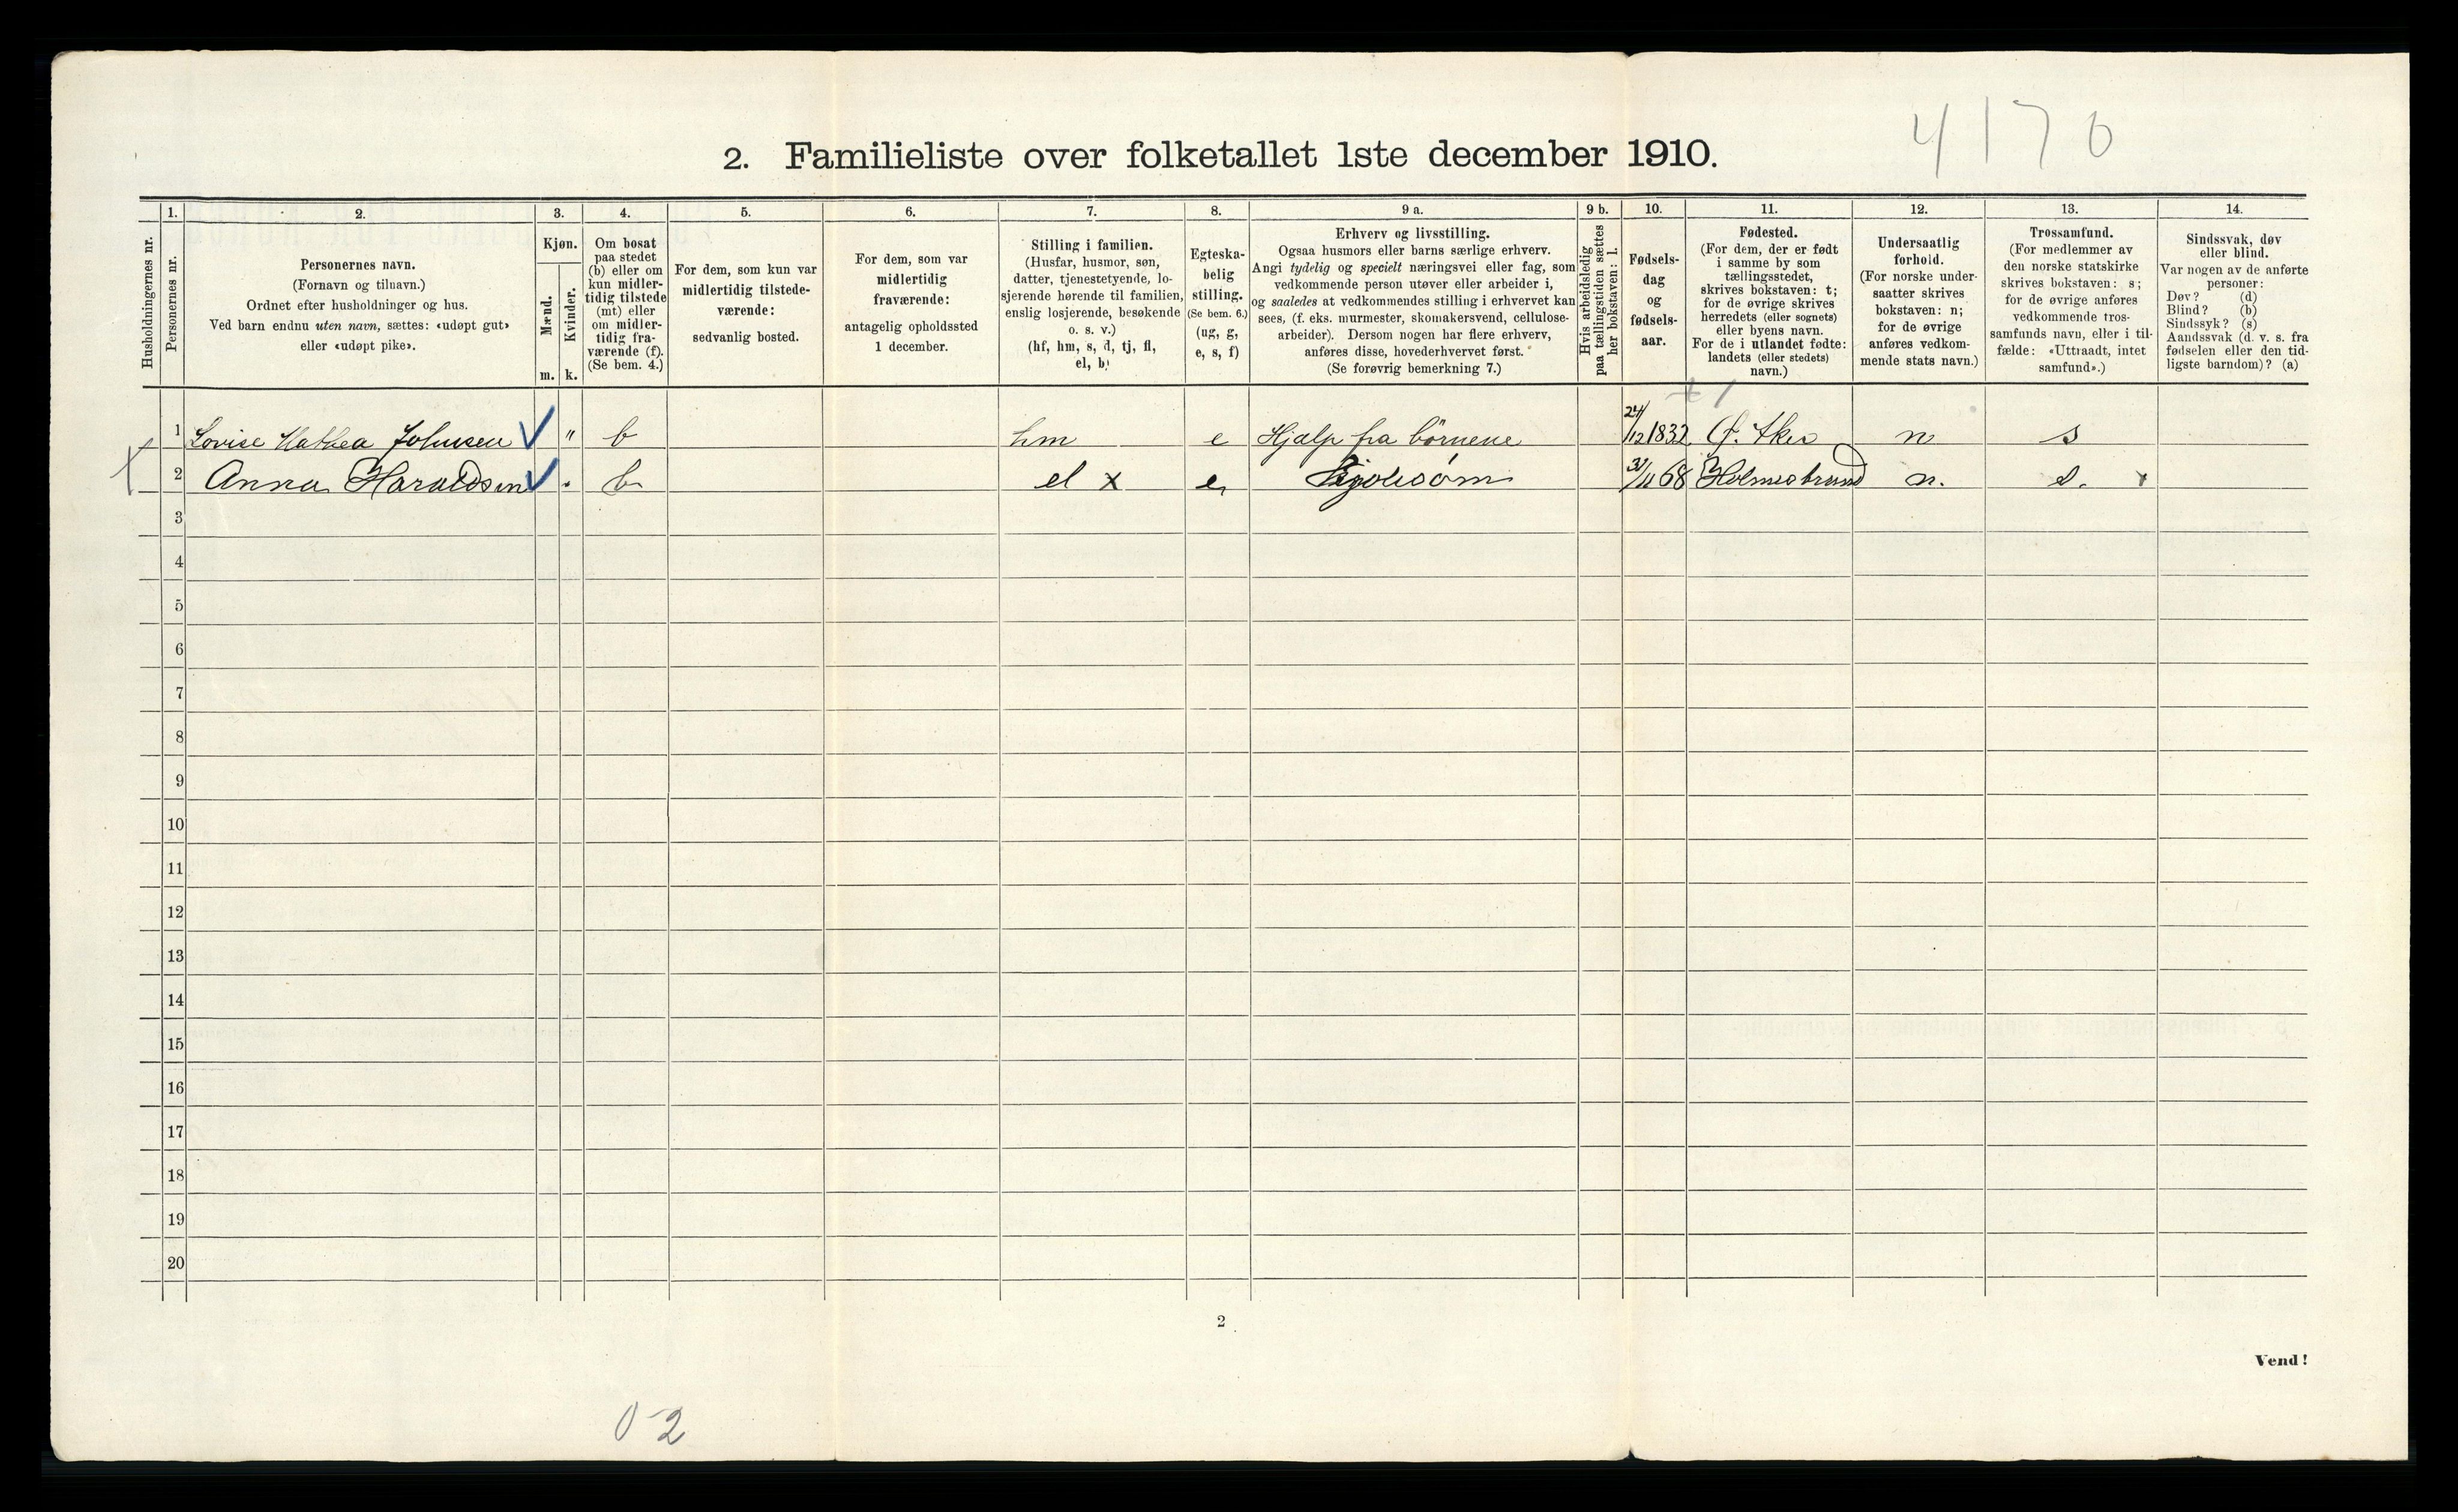 4170
2. Familieliste over folketallet 1ste december 1910.
Husholdningernes nr.
1.
Personernes nr.
2.
Personernes navn.
(Fornavn og tilnavn.)
Ordnet efter husholdninger og hus.
Ved barn endnu uten navn, sættes: «udøpt gut»
eller «udøpt pike».
3.
Kjøn.
Mænd.
Kvinder.
m. k.
4.
Om bosat
paa stedet
(b) eller om
kun midler-
tidig tilstede
(mt) eller
om midler-
tidig fra-
værende (f).
(Se bem. 4.)
5.
For dem, som kun var
midlertidig tilstede-
værende:
sedvanlig bosted.
6.
For dem, som var
midlertidig
fraværende:
antagelig opholdssted
1 december.
7.
Stilling i familien.
(Husfar, husmor, søn,
datter, tjenestetyende, lo-
sjerende hørende til familien,
enslig losjerende, besøkende
o. s. v.)
(hf, hm, s, d, tj, fl,
el, b)
8.
Egteska-
belig
stilling.
(Se bem. 6.)
(ug, g,
e, s, f)
9 a.
Erhverv og livsstilling.
Ogsaa husmors eller barns særlige erhverv.
Angi tydelig og specielt næringsvei eller fag, som
vedkommende person utøver eller arbeider i,
og saaledes at vedkommendes stilling i erhvervet kan
sees, (f. eks. murmester, skomakersvend, cellulose-
arbeider). Dersom nogen har flere erhverv,
anføres disse, hovederhvervet først.
(Se forøvrig bemerkning 7.)
9 b.
Hvis arbeidsledig
paa tællingstiden sættes
her bokstaven: l.
10.
Fødsels-
dag
og
fødsels-
aar.
11.
Fødested.
(For dem, der er født
i samme by som
tællingsstedet,
skrives bokstaven: t;
for de øvrige skrives
herredets (eller sognets)
eller byens navn.
For de i utlandet fødte:
landets (eller stedets)
navn.)
12.
Undersaatlig
forhold.
(For norske under-
saatter skrives
bokstaven: n;
for de øvrige
anføres vedkom-
mende stats navn.)
13.
Trossamfund.
(For medlemmer av
den norske statskirke
skrives bokstaven: s;
for de øvrige anføres
vedkommende tros-
samfunds navn, eller i til-
fælde: «Uttraadt, intet
samfund».)
14.
Sindssvak, døv
eller blind.
Var nogen av de anførte
personer:
Døv? (d)
Blind? (b)
Sindssyk? (s)
Aandssvak (d. v. s. fra
fødselen eller den tid-
ligste barndom)? (a)
1 Lovise Mathea Johnsen " b hm e Hjælp fra børnene 24/12 1832 Ø. Aker n s
2 Anna Haraldsen b el x e Kjolesøm 30/11 68 Holmestrand n. s.
3
4
5
6
7
8
9
10
11
12
13
14
15
16
17
18
19
20
2
Vend!
0-2